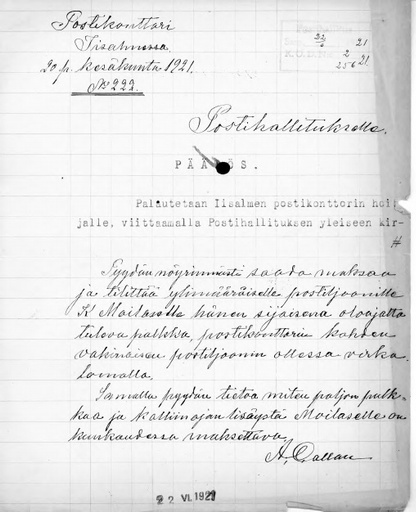 Postikonttori
Iisalmessa
20 p. kesäkuuta 1921.
No 222.
22/6 21
2
256 21
Postihallitukselle.
PÄÄTÖS.
Palautetaan Iisalmen postikonttorin hoi-
jalle, viittaamalla Postihallituksen yleiseen kir-
#
Pyydän nöyrimmästi saada maksaa
ja tilittää ylimääräiselle postiljoonille
K Moilaselle hänen sijaisena oloajalta
tuleva palkka, postikonttorin kahden
vakinaisen postiljoonin ollessa virka
lomalla.
Samalla pyydän tietoa miten paljon palk-
kaa ja kalliinajan lisäystä Moilaselle on
kuukaudessa maksettava.
22 VI. 1921